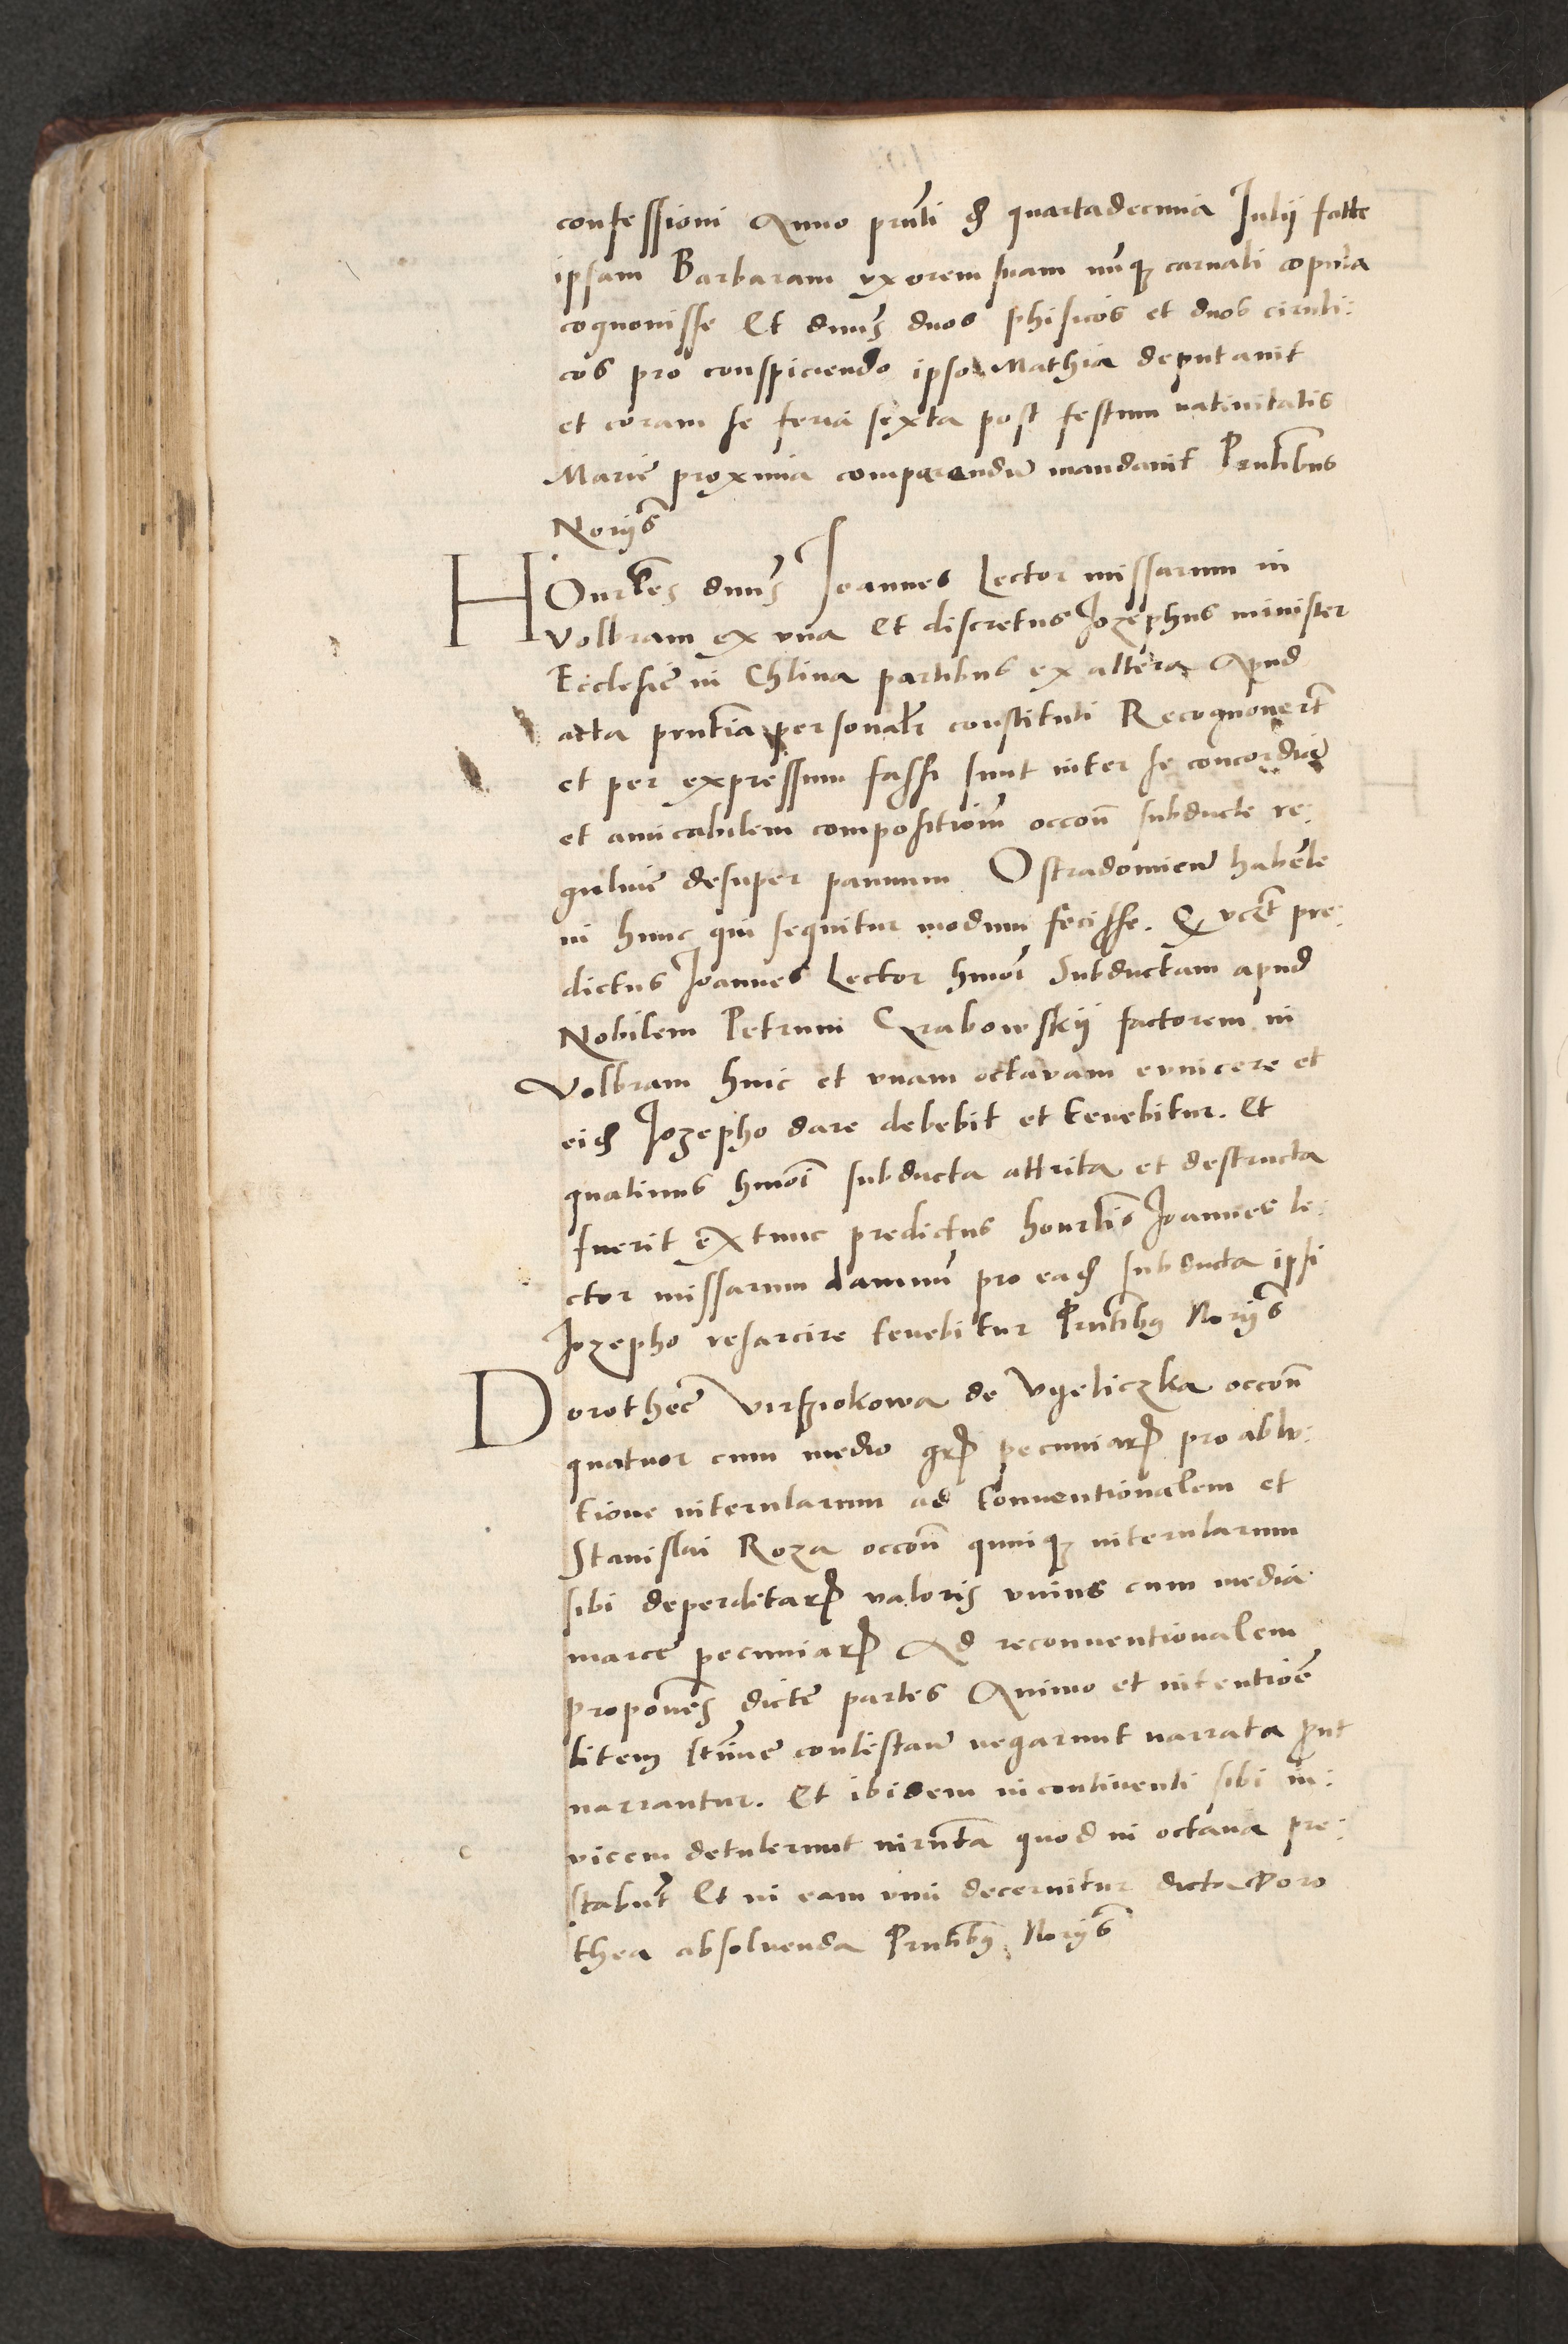 confessioni Anno prnti d quartadecima Julij facte
ipsam Barbaram uxorem suam nunq carnali copula
cognouisse Et dnus duos phisicos et duos ciruli:
cos pro conspiciendo ipso Mathia deputauit
et coram se feria sexta post festum natiuitatis
Marie proxima comparendum mandauit Prntibus
Norijs
HOnrbles dnus Joannes Lector missarum in
Volbram ex vna Et discretus Jozephus minister
Ecclesie in Chlina partibus ex altera Apud
acta prntia personalr constituti Recognouert
et per expressum fassi sunt inter se concordia
et amicabilem compositionem occone subducte re:
guline desuper pannum Ostradomicum habente
in hunc qui sequitur modum fecisse. Q vert pre:
dictus Joannes Lector hmoi Subductam apud
Nobilem Petrum Grabowskij factorem in
Volbram hinc et vnam octauam euincere et
eid Jozepho dare debebit et tenebitur. Et
quatinus hmoi subducta attrita et destructa
fuerit extunc predictus honrbilis Joannes le:
ctor missarum damnum pro ead subducta ipsi
Jozepho resarcire tenebitur Prntibus Norijs
Dorothee Virziokowa de Vgeliczka occone
quatuor cum medio gr pecuniar pro ablu:
tione interularum ad conuentionalem et
Stanislai Roza occone quinq interularum
sibi deperditar valoris vnius cum media
marce pecuniar Ad reconuentionalem
propones dicte partes Animo et intentioe
litem contestan negarunt narrata put
narrantur. Et ibidem incontinenti sibi in:
uicem detulerunt iurnta quod in octaua pre:
stabunt Et in eam vim decernitur dicta Doro
thea absoluenda Prntibus Norijs